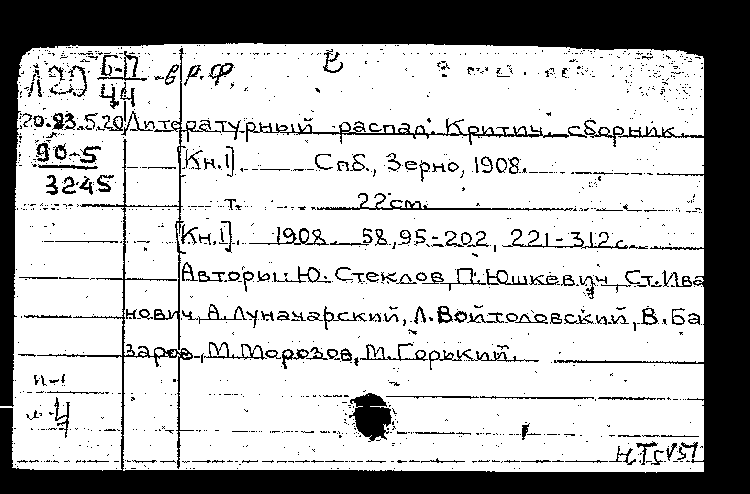 Л20 Б-П - в р.Ф. В
44
20.23.5.20 Литературный распад: Критич. сборник.
90-5 [Кн.I]. Спб., Зерно, 1908.
3245
т. 22см.
[Кн.I]. 1908. 58,95-202, 221-312с.
Авторы: Ю. Стеклов, П. Юшкевич, Ст. Ива
нович, А. Луначарский, Л. Войтоловский, В. Ба
заров, М. Морозов, М. Горький.
п-1